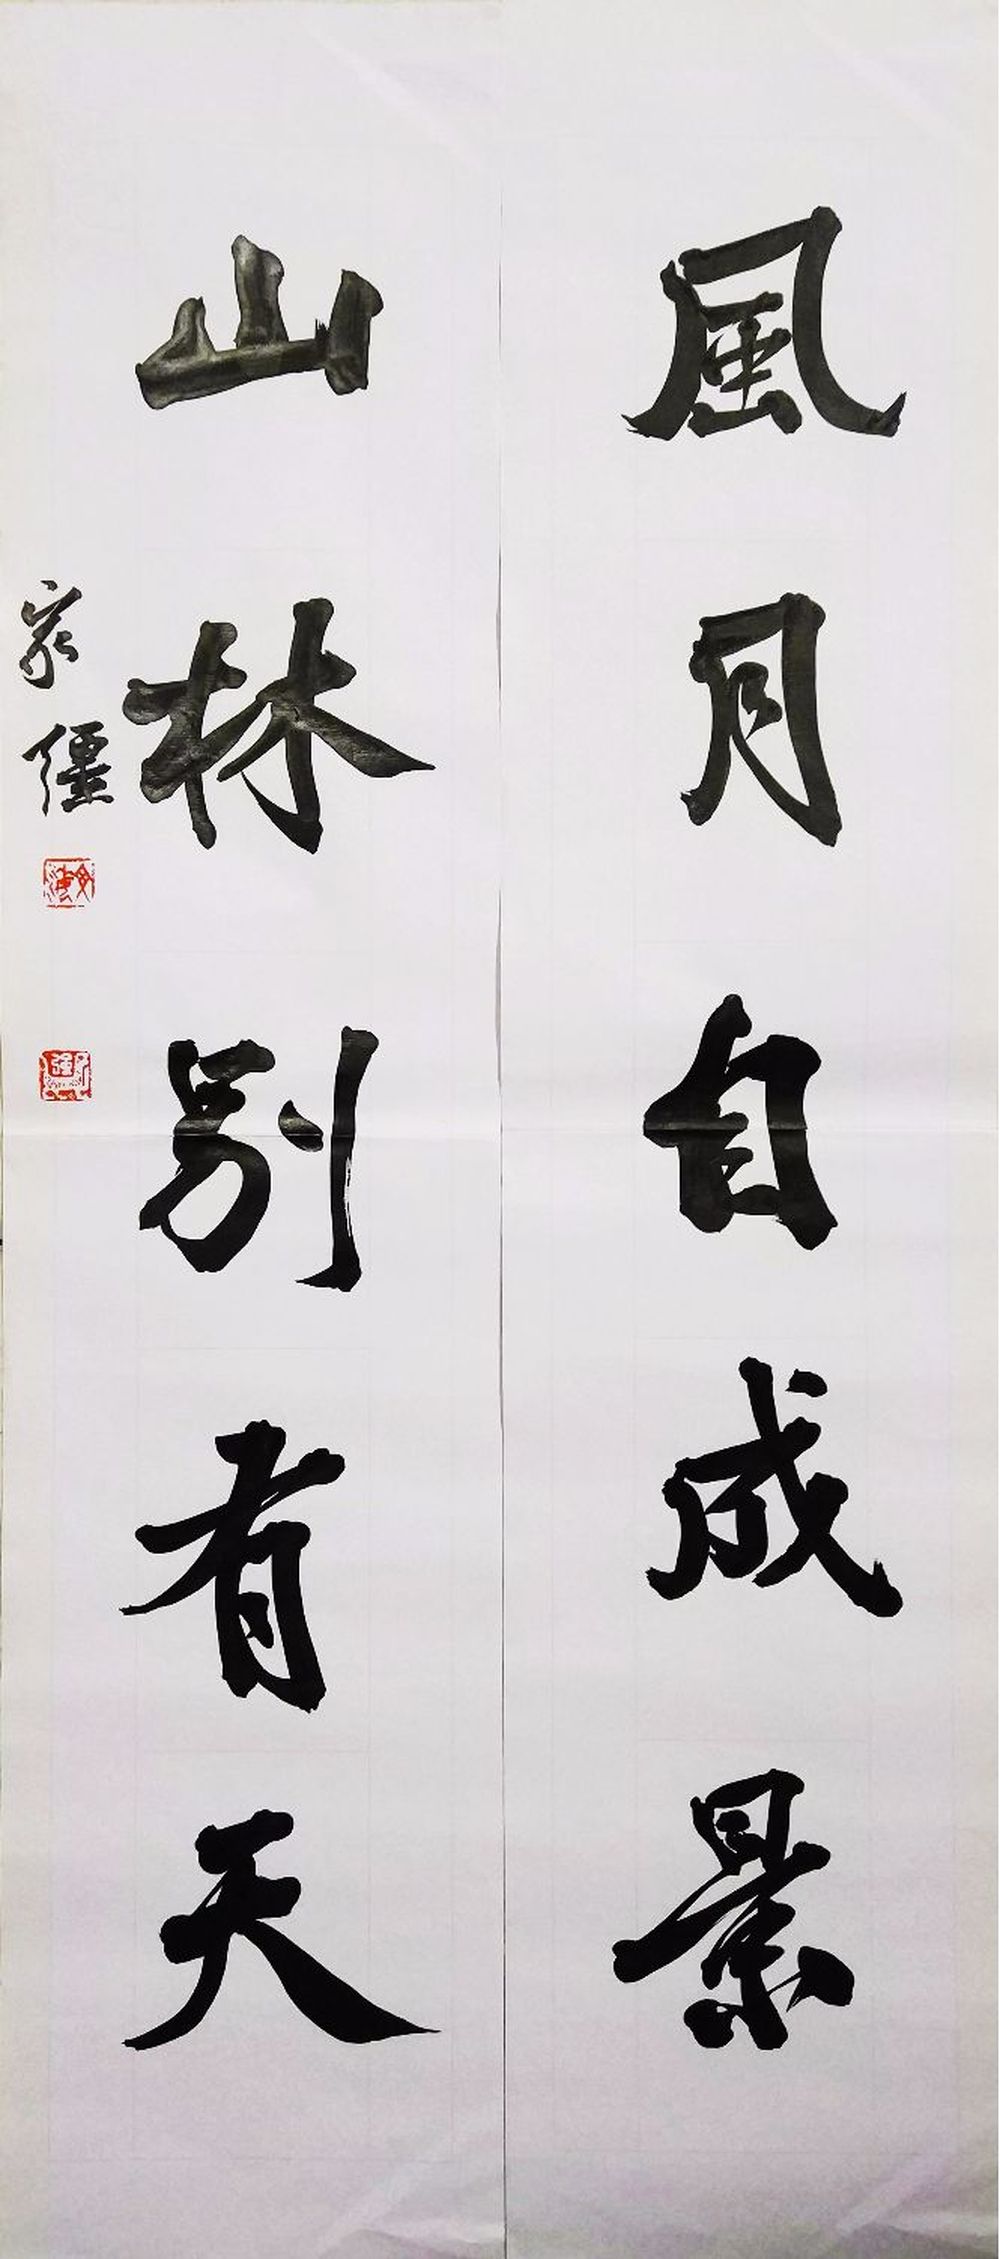 風月自成景
山林別有天
家彊